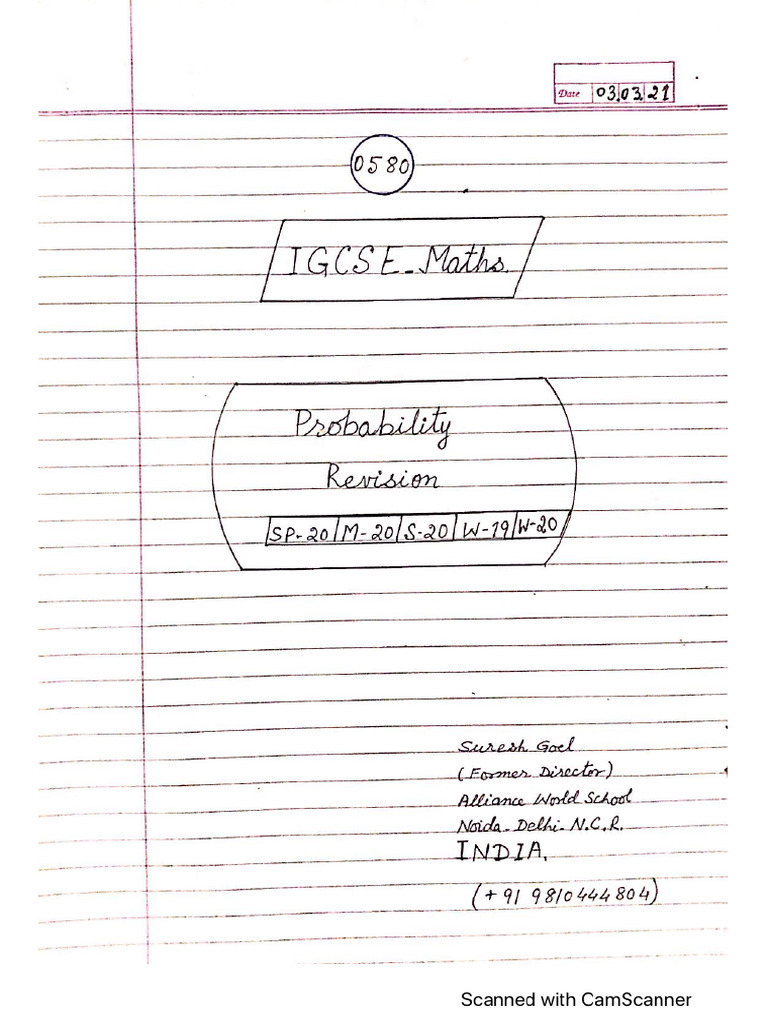 Date 03.03.21
0580
IGCSE-Maths.
Probability
Revision
SP-20 M-20 S-20 W-19 W-20
Suresh Goel
(Former Director)
Alliance World School
Noida-Delhi-N.C.R.
INDIA.
(+91 9810444804)
Scanned with CamScanner